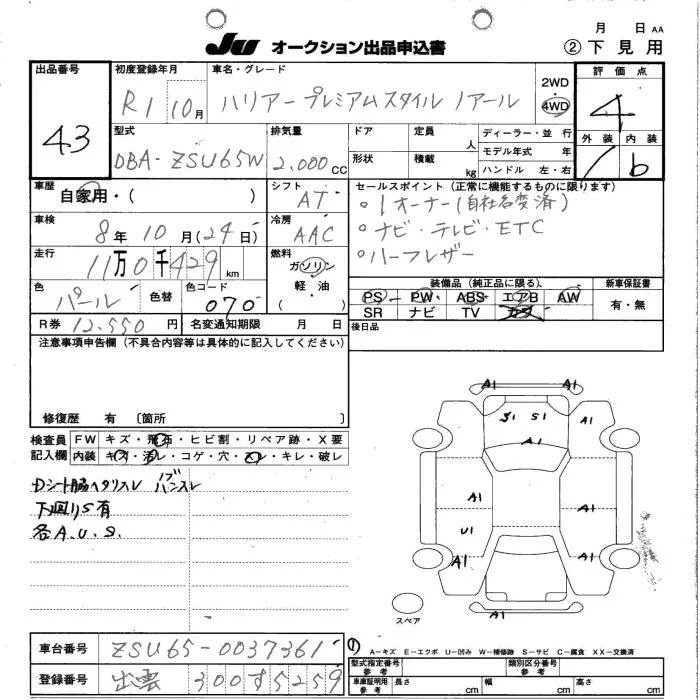 月 日 AA
JU オークション出品申込書 ② 下見用
出品番号 43
初度登録年月 R1 10月
車名・グレード ハリアー プレミアムスタイル ノアール
2WD
4WD
評価点 4
外装 内装
1 b
型式 DBA-ZSU65W
排気量 2.000 CC
ドア 定員 人
形状 積載 kg
ディーラー・並行
モデル年式 年
ハンドル 左・右
車歴 自家用・( )
シフト AT
セールスポイント (正常に機能するものに限ります)
○1オーナー(自社名変済)
○ナビ・テレビ・ETC
○ハーフレザー
車検 8年 10月 (24日)
冷房 AAC
走行 11万0千429km
燃料 ガソリン
軽油
( )
色 パール 色替 色コード 070
装備品 (純正品に限る) 新車保証書
PS PW ABS エアB AW 有・無
SR ナビ TV カワ
R券 12.550円 名変通知期限 月 日
後日品
注意事項申告欄 (不具合内容等は具体的に記入してください)
修復歴 有 〔箇所 〕
検査員 FW キズ・飛石・ヒビ割・リペア跡・X要
記入欄 内装 キズ・汚レ・コゲ・穴・スレ・キレ・破レ
Dシート脇ヘタリスレ ノブ ハンスレ
下廻りS有
各A.U.S.
A1 A1
S1 S1 A1
A1
A1 A1
U1
A1 A1
A1 A1
スペア
①
A-キズ E-エクボ U-凹み W-補修跡 S-サビ C-腐食 XX-交換済
車台番号 ZSU65-0037361
登録番号 出雲 300す5259
型式指定番号 参考 類別区分番号 参考
車庫証明用 参考 長さ cm 幅 cm 高さ cm